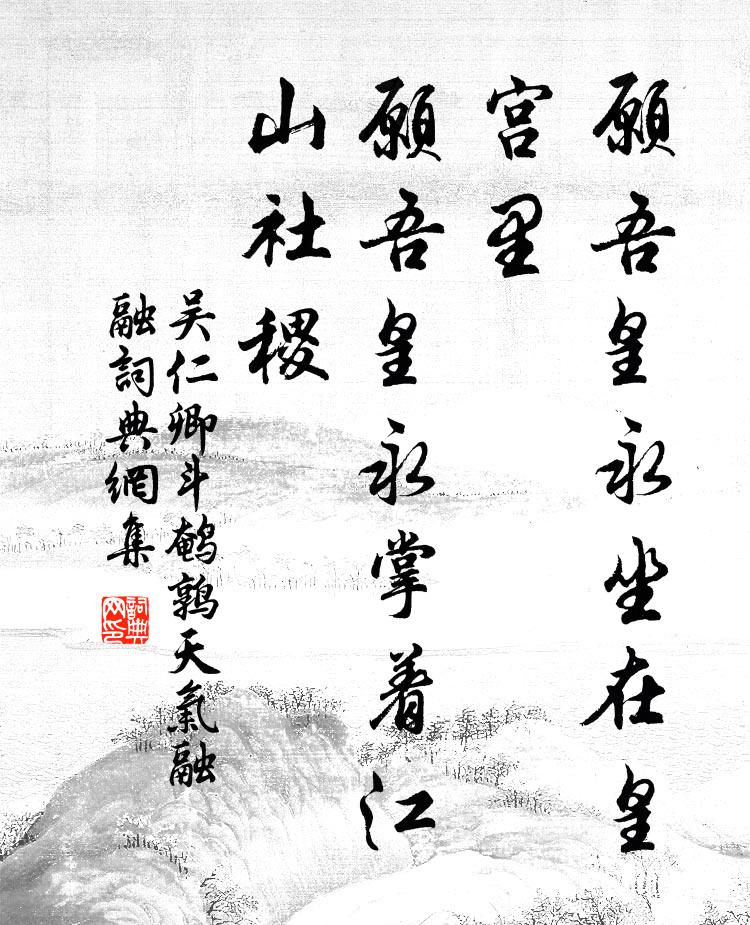 願吾皇永坐在皇
宮里
願吾皇永掌着江
山社稷
吴仁卿斗鹌鹑天氣融
融詞典網集
詞典
网印